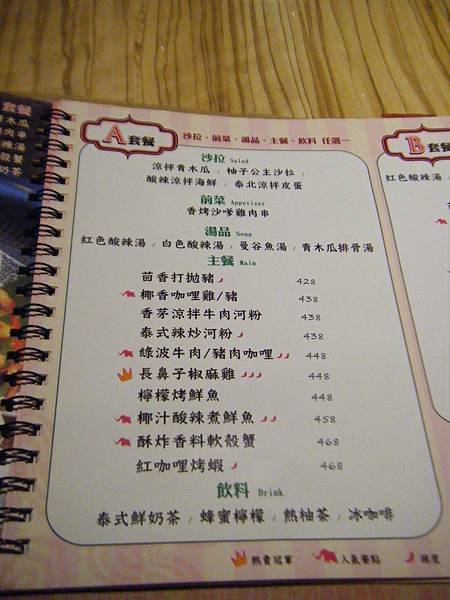 套餐
木瓜
肉串
辣湯
殼蟹
奶茶
A套餐 沙拉、前菜、湯品、主餐、飲料 任選一
沙拉 Salad
涼拌青木瓜 / 柚子公主沙拉 /
酸辣涼拌海鮮 / 泰北涼拌皮蛋
前菜 Appetizer
香烤沙嗲雞肉串
湯品 Soup
紅色酸辣湯 / 白色酸辣湯 / 曼谷魚湯 / 青木瓜排骨湯
主餐 Main
茴香打拋豬 428
椰香咖哩雞/豬 438
香茅涼拌牛肉河粉 438
泰式辣炒河粉 438
綠波牛肉/豬肉咖哩 448
長鼻子椒麻雞 448
檸檬烤鮮魚 448
椰汁酸辣煮鮮魚 458
酥炸香料軟殼蟹 468
紅咖哩烤蝦 468
飲料 Drink
泰式鮮奶茶 / 蜂蜜檸檬 / 熱柚茶 / 冰咖啡
熱賣冠軍 人氣餐點 辣度
B套餐
紅色酸辣湯